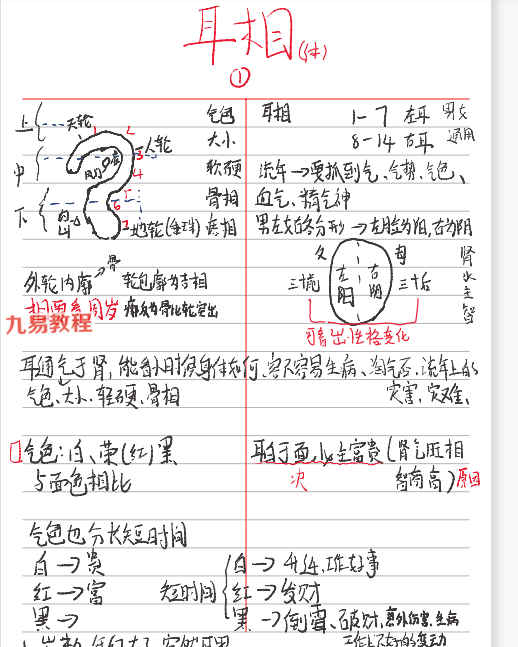 耳相(休)
①
上 天轮 气色 耳相 1-7 左耳 男女
人轮 大小 8-14 右耳 通用
中 软硬 流年→要抓到气、气势、气色、
下 骨相 血气、精气神
地轮(垂珠) 痣相 男左女右分形→左脸为阳,右为阴
父 母 肾水主智
外轮内廓→骨 轮包廓为吉相 三十前 左阳 右阴 三十后
相两看周岁 廓为骨比轮突出
九易教程 可看出性格变化
耳通气于肾,能看小时候身体如何、容不容易生病、淘气否、流年上的
气色、大小、轻硬、骨相 灾害、灾难、
气色:白、荣(红)黑 耳白于面,必主富贵(肾气旺相
与面色相比 次 智商高)原因
气色也分长短时间
白→贵 白→升学,工作好事
红→富 短时间 红→发财
黑→ 黑→倒霉、破财,意外伤害,生病